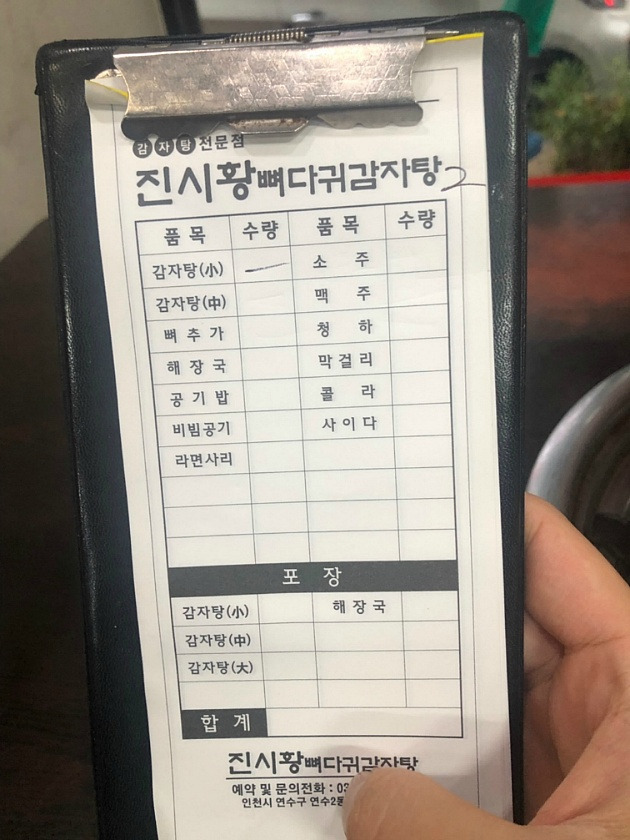 감자탕 전문점
진시황뼈다귀감자탕 2
품목 수량 품목 수량
감자탕(小) 소주
감자탕(中) 맥주
뼈추가 청하
해장국 막걸리
공기밥 콜라
비빔공기 사이다
라면사리
포장
감자탕(小) 해장국
감자탕(中)
감자탕(大)
합계
진시황뼈다귀감자탕
예약 및 문의전화 : 03
인천시 연수구 연수2동